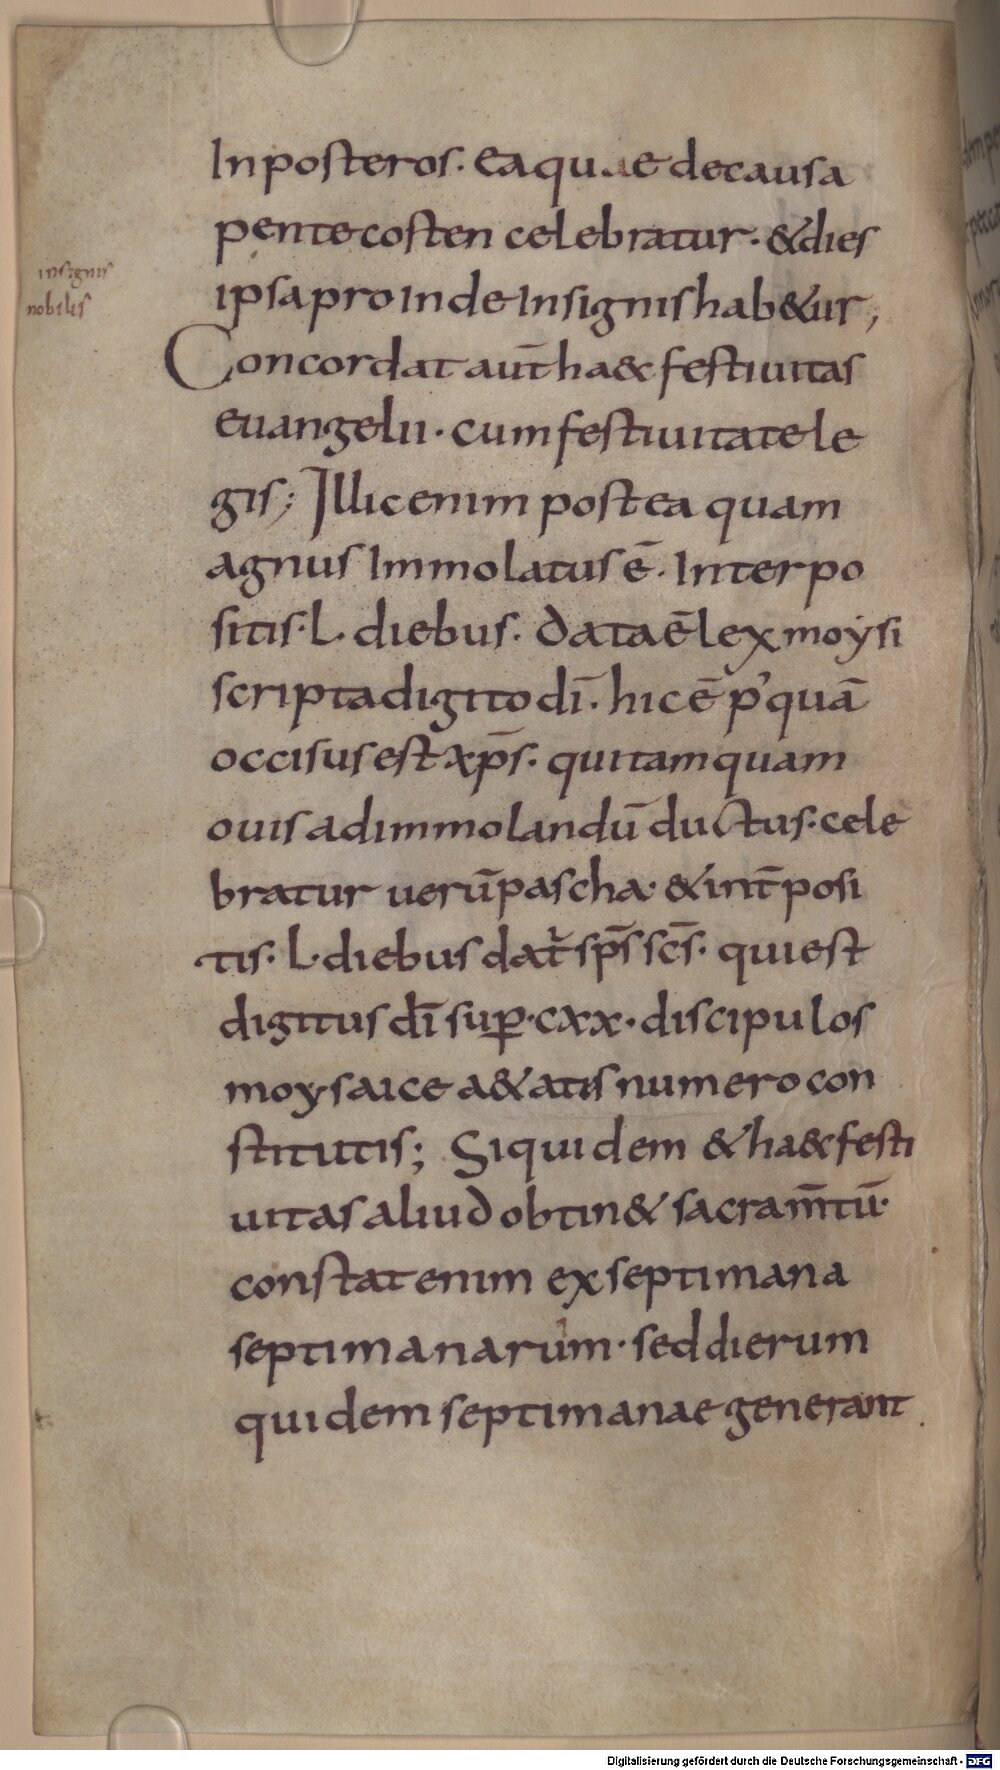 insignis
nobilis
In posteros. ea quae de causa
pentecosten celebratur. & dies
ipsa proinde Insignis hab&ur;
Concordat aut̄ ha& festiuitas
euangelii. cum festiuitate le
gis; Illic enim postea quam
agnus Immolatus ē. Interpo
sitis. L. diebus. data ē lex moẏsi
scripta digito dī. hic ē p'quā
occisus est xp̄s. qui tamquam
ouis ad immolandū ductus. cele
bratur uerū pascha. & int̄posi
tis. L. diebus dat̄ sp̄s sc̄s. qui est
digitus dī sup̱. cxx. discipulos
moysaice a&atis numero con
stitutis; Siquidem & ha& festi
uitas aliud obtin& sacram̄tū.
constat enim ex septimana
septimanarum. sed dierum
quidem septimanae generant
Digitalisierung gefördert durch die Deutsche Forschungsgemeinschaft - DFG